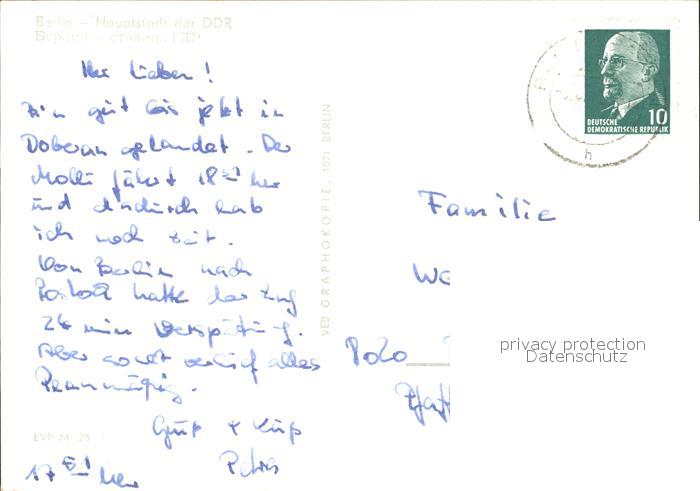 Berlin — Hauptstadt der DDR
Берлин — столица ГДР
Ihr Lieben!
Bin gut bis jetzt in
Doberan gelandet. Der
Molli fährt 18⁵¹ her
und dadurch hab
ich noch Zeit.
Von Berlin nach
Rostock hatte der Zug
24 min Verspätung.
Aber sonst verlief alles
Planmäßig.
Gruß + Kuß
Petra
17⁵¹
EVP M -,25
VEB GRAPHOKOPIE, 1071 BERLIN
DEUTSCHE
DEMOKRATISCHE REPUBLIK
10
h
Familie
We
Polo
privacy protection
Datenschutz